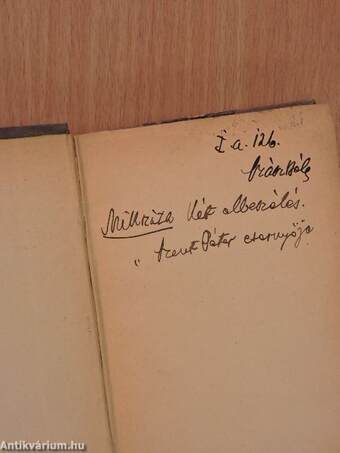 I. a. 126.
Mikszáth Két elbeszélés.
" Szent Péter esernyője
Antikvárium.hu